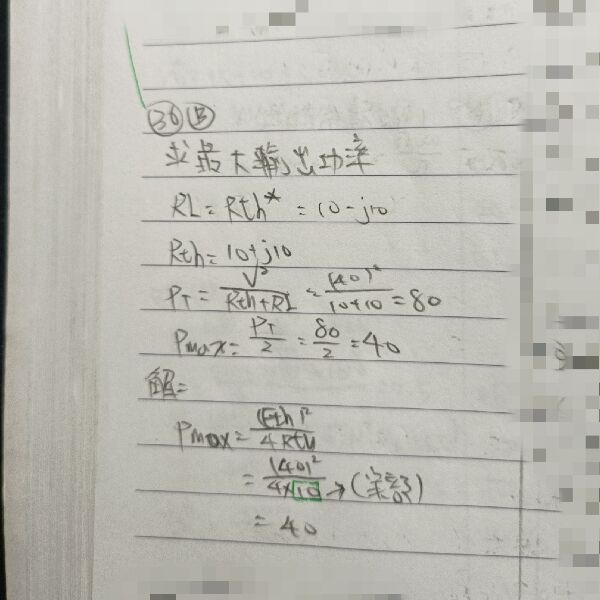 36 B
求最大輸出功率
RL = Rth* = 10 - j10
Rth = 10 + j10
PT = V² / Rth+RL = (40)² / 10+10 = 80
Pmax = PT / 2 = 80 / 2 = 40
解:
Pmax = (Eth)² / 4Rth
= (40)² / 4×10 → (
= 40